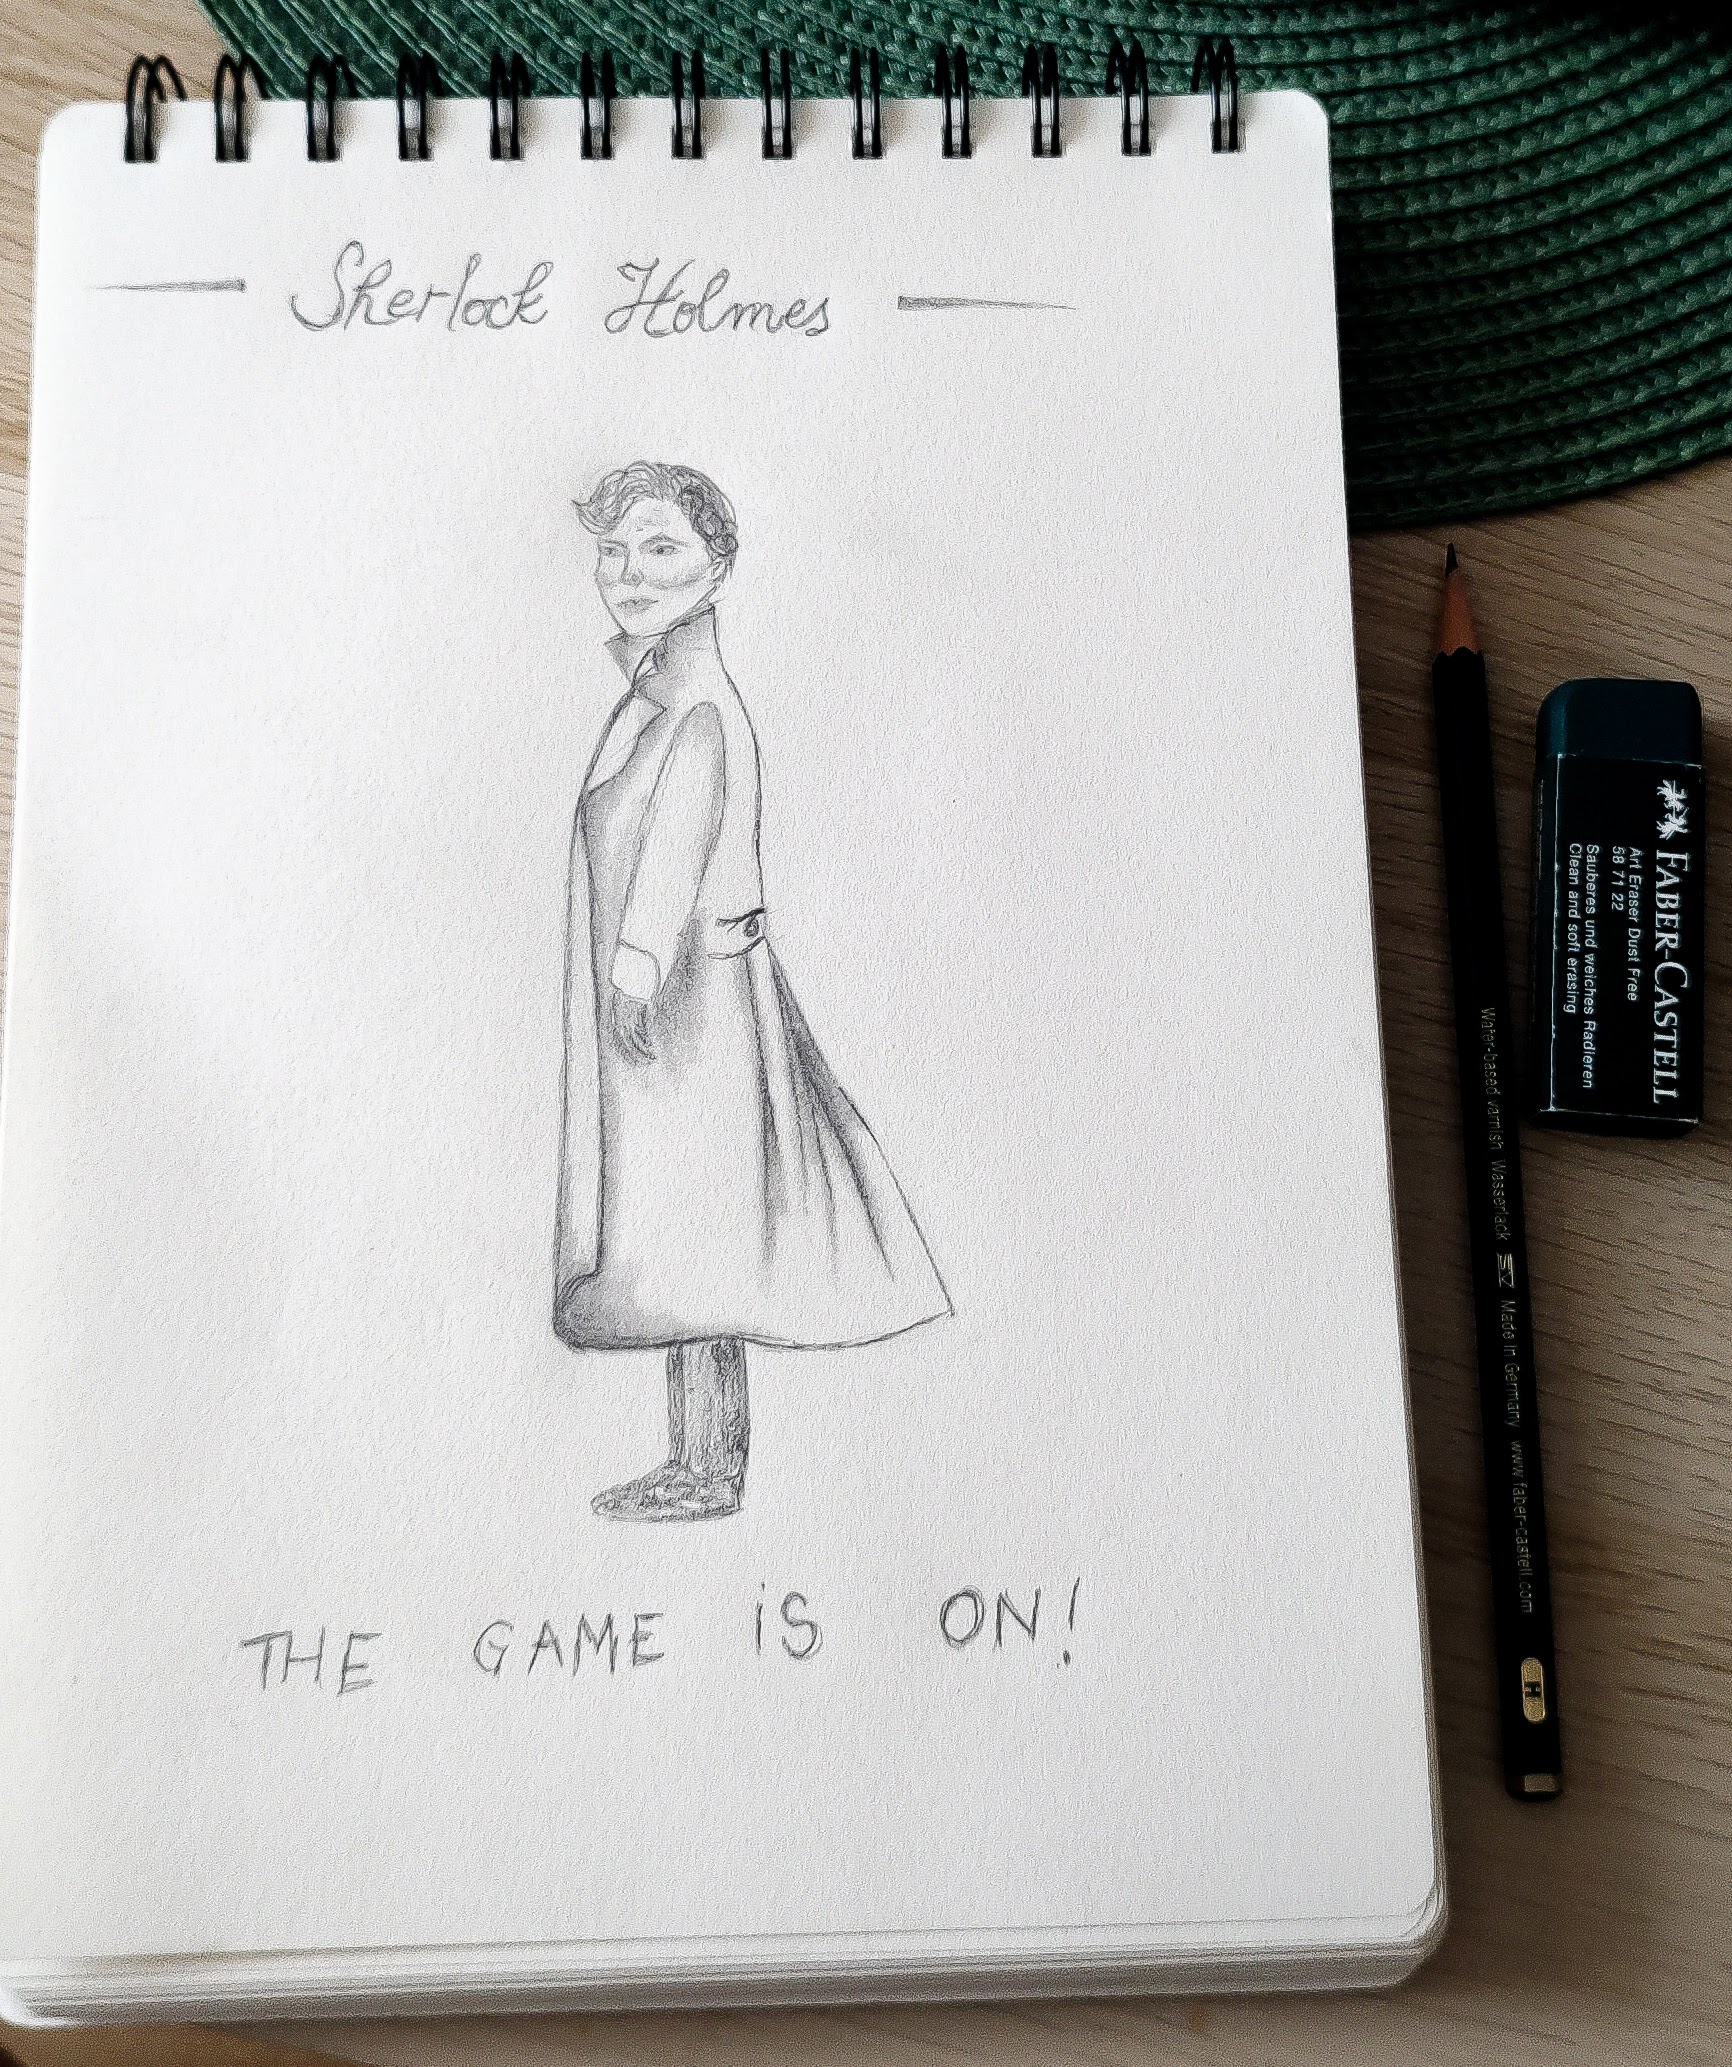 Sherlock Holmes
THE GAME iS ON!
FABER-CASTELL
Art Eraser Dust Free
58 71 22
Sauberes und weiches Radieren
Clean and soft erasing
Water-based varnish Wasserlack SV Made in Germany www.faber-castell.com
H